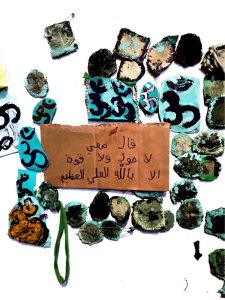 قال معي
لا حول ولا قوة
الا بالله العلي العظيم